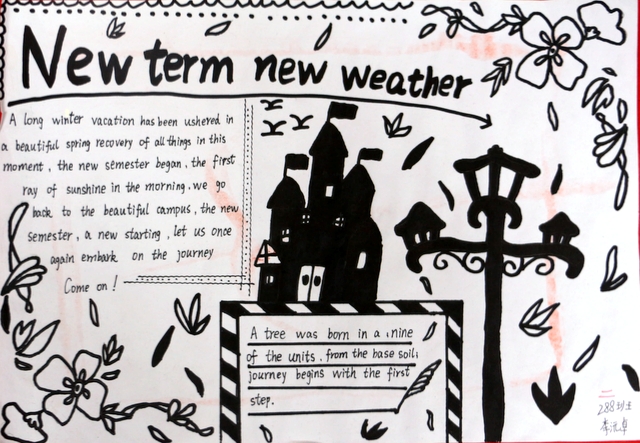 New term new weather
A long winter vacation has been ushered in
a beautiful spring recovery of all things in this
moment, the new semester began, the first
ray of sunshine in the morning, we go
back to the beautiful campus, the new
semester, a new starting, let us once
again embark on the journey
Come on!
A tree was born in a nine
of the units, from the base soil,
journey begins with the first
step.
二
288班
李